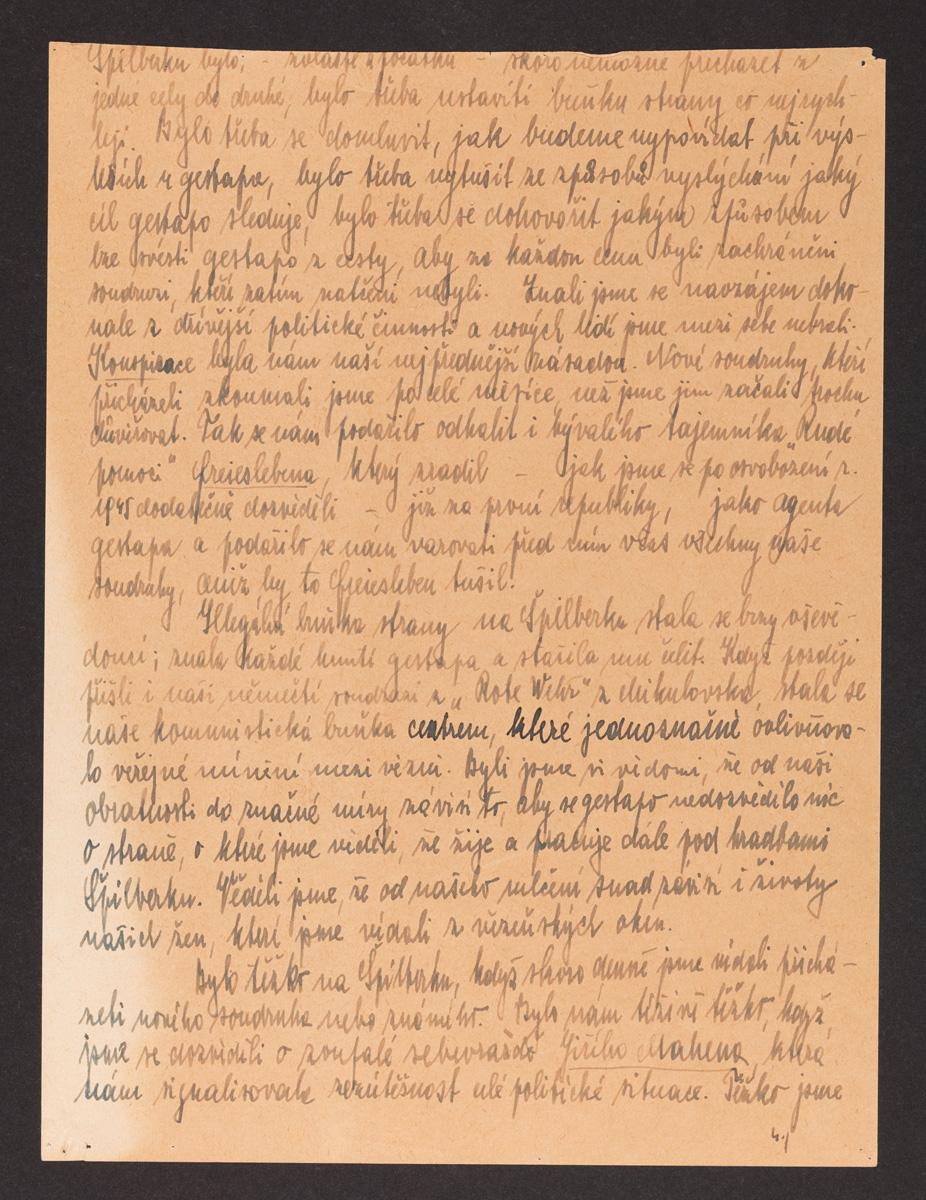 Špilberku bylo, - zvláště zpočátku - skoro nemožné přecházet z
jedné cely do druhé, bylo třeba ustaviti buňku strany co nejrych-
leji. Bylo třeba se domluvit, jak budeme vypovídat při výs-
leších u gestapa, bylo třeba vytušit ze způsobu vyslýchání jaký
cíl gestapo sleduje, bylo třeba se dohovořit jakým způsobem
lze svésti gestapo z cesty, aby za každou cenu byli zachráněni
soudruzi, kteří zatím zatčeni nebyli. Znali jsme se navzájem doko-
nale z dřívější politické činnosti a nových lidí jsme mezi sebe nebrali.
Konspirace byla nám naší nejpřednější zásadou. Nové soudruhy, kteří
přicházeli zkoumali jsme po celé měsíce, než jsme jim začali trochu
důvěřovat. Tak se nám podařilo odhalit i bývalého tajemníka "Rudé
pomoci" Freieslebena, který zradil - jak jsme se po osvobození r.
1945 dodatečně dozvěděli - již za první republiky, jako agenta
gestapa a podařilo se nám varovati před ním včas všechny naše
soudruhy, aniž by to Freiesleben tušil.
Illegální buňka strany na Špilberku stala se brzy vševě-
doucí; znala každé hnutí gestapa a stačila mu čelit. Když později
přišli i naši němečtí soudruzi z „Rote Wehr" z Mikulovska, stala se
naše komunistická buňka centrem, které jednoznačně ovlivňova-
lo veřejné mínění mezi vězni. Byli jsme si vědomi, že od naší
obratnosti do značné míry závisí to, aby se gestapo nedozvědělo nic
o straně, o které jsme věděli, že žije a pracuje dále pod hradbami
Špilberku. Věděli jsme, že od našeho mlčení snad závisí i životy
našich žen, které jsme vídali z vězeňských oken.
Bylo těžko na Špilberku, když skoro denně jsme vídali přichá-
zeti nového soudruha nebo známého. Bylo nám tíživě těžko, když
jsme se dozvěděli o zoufalé sebevraždě Jiřího Mahena, která
nám signalisovala neutěšnost celé politické situace. Těžko jsme
4.)